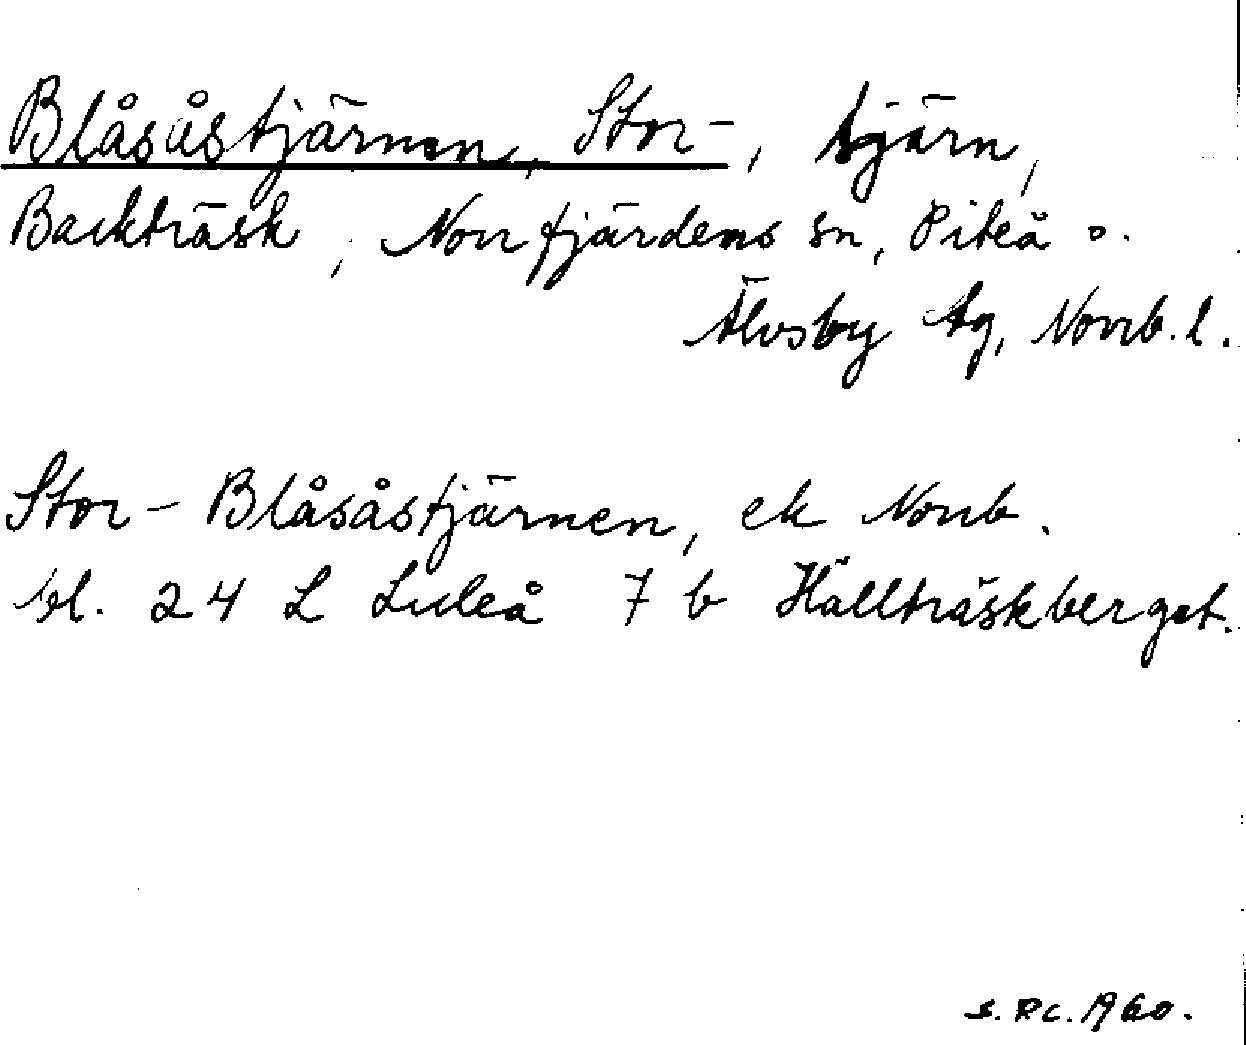 Blåsåstjärnen, Stor-, tjärn,
Backträsk, Norrfjärdens sn, Piteå o.
Älvsby tg, Norrb. l.
Stor-Blåsåstjärnen, ek Norrb.
bl. 24 L Luleå 7 b Hällträskberget.
S. Rc. 1960.